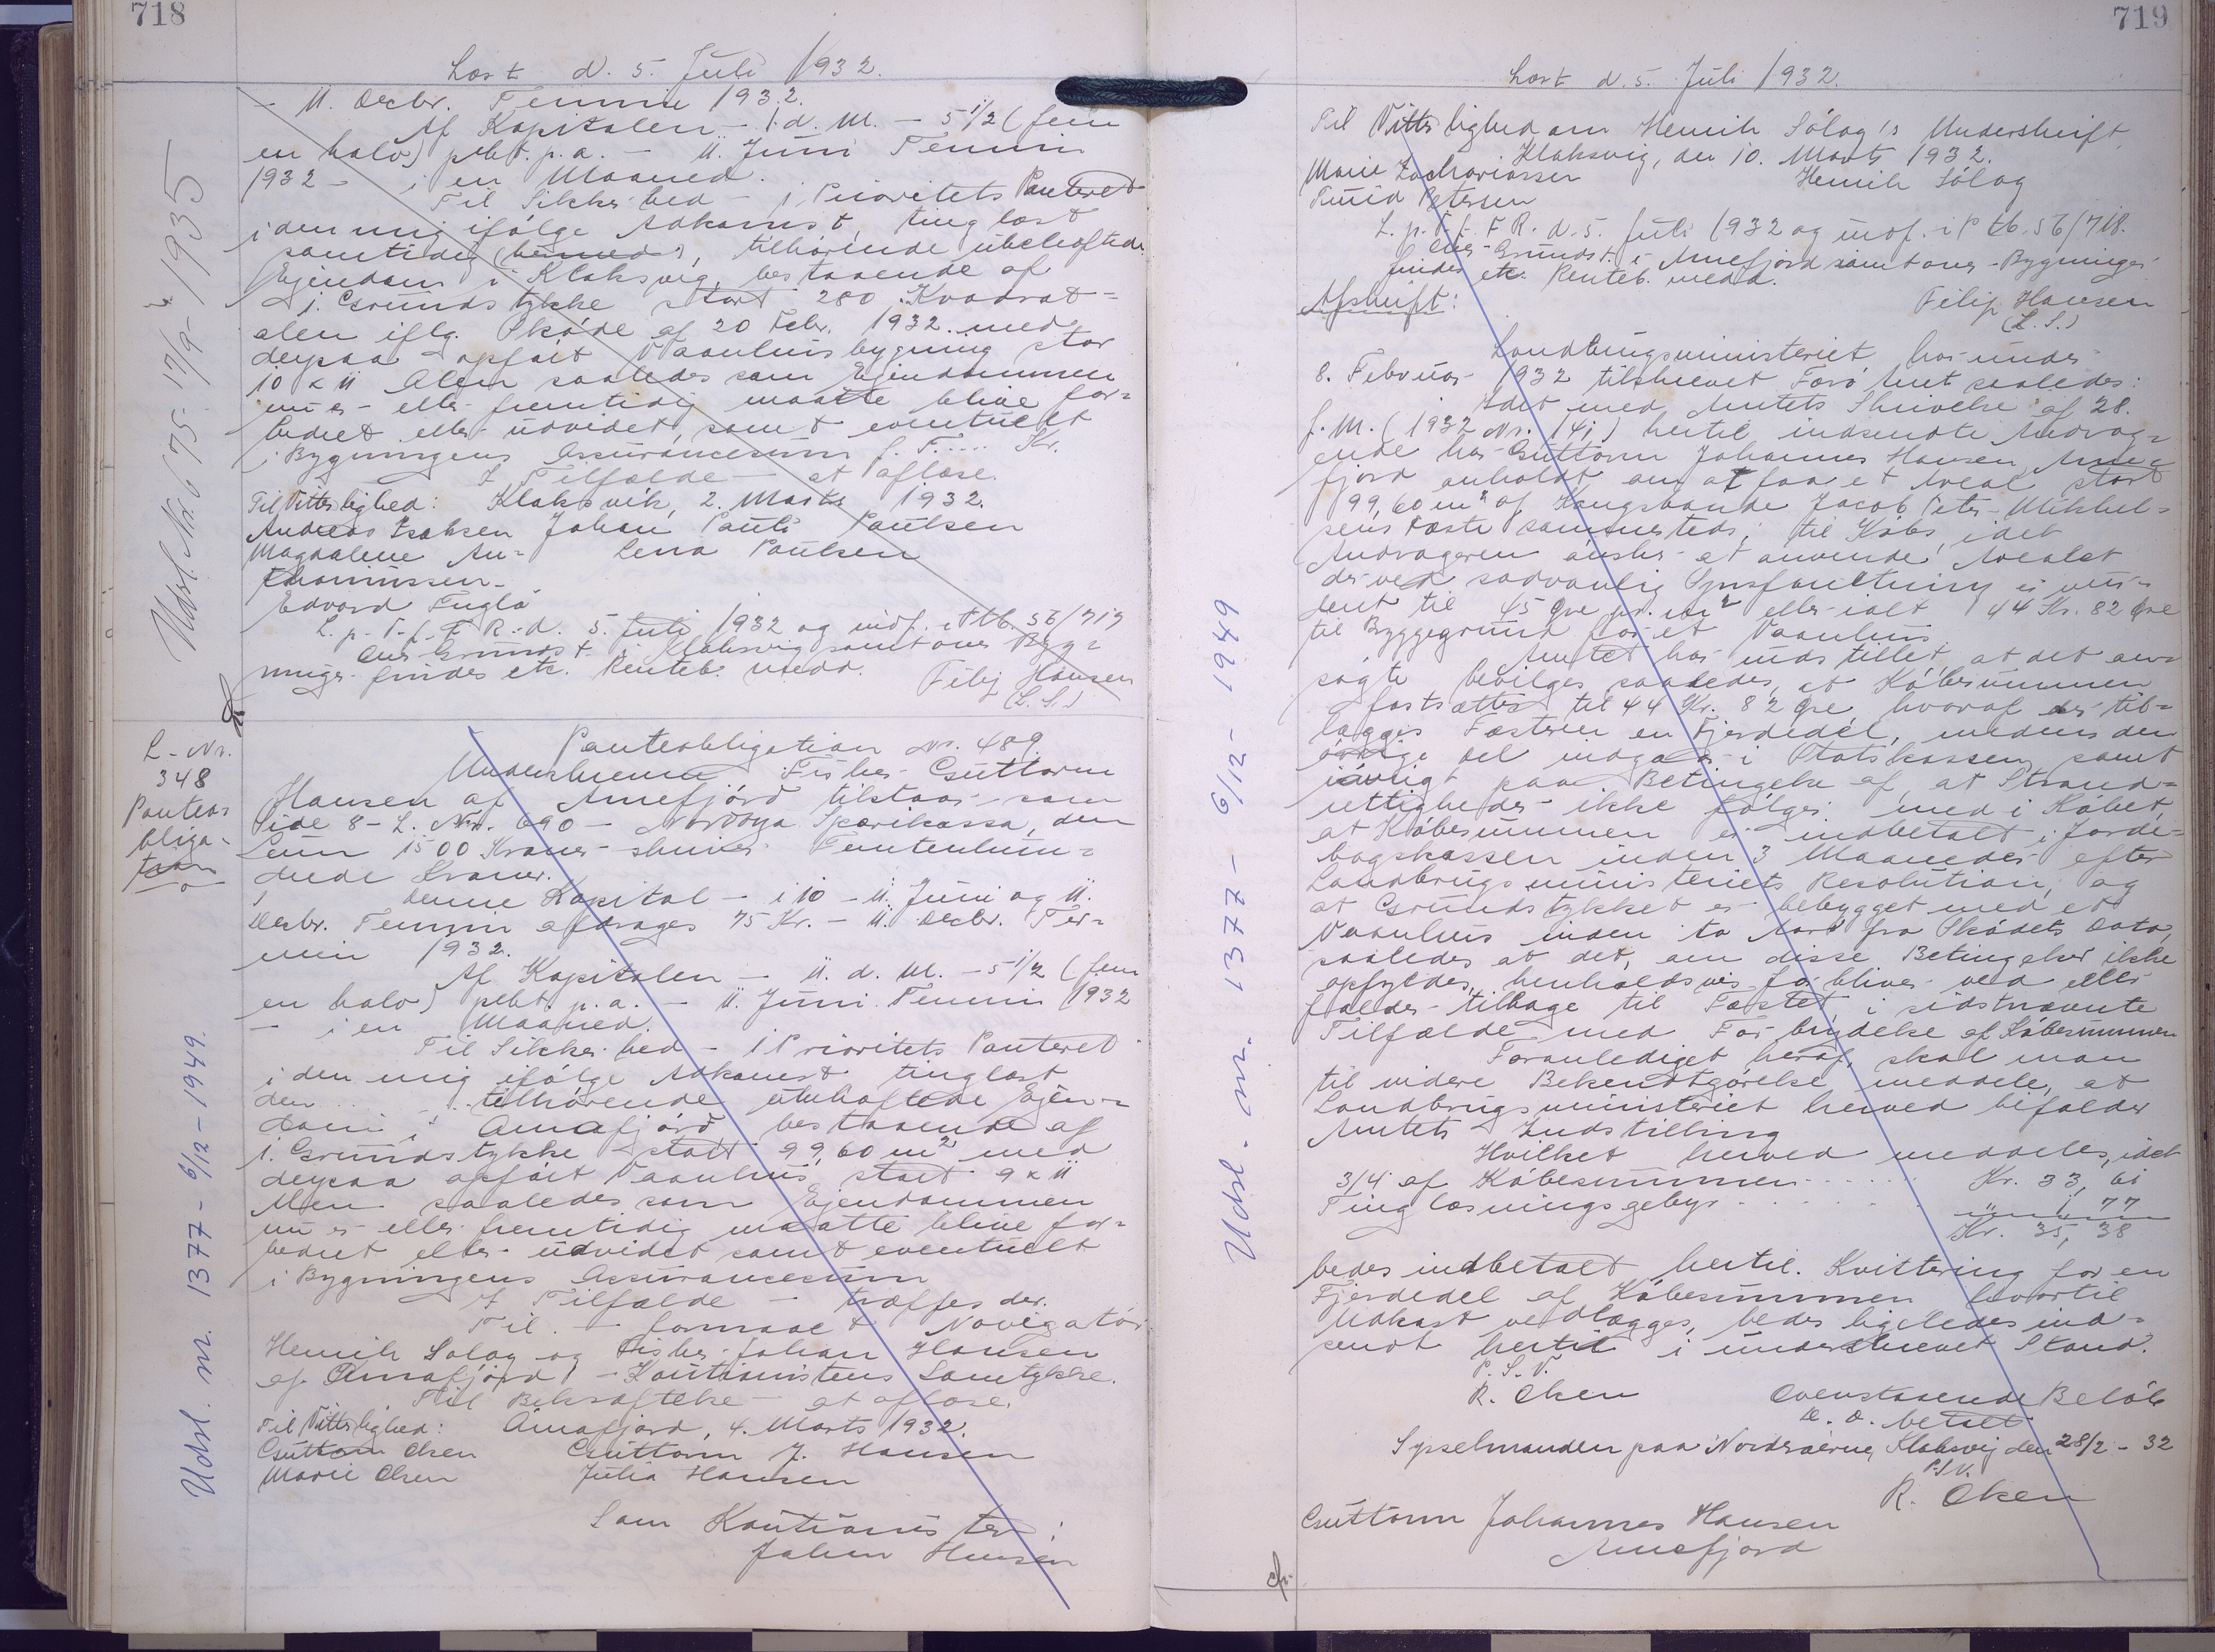 718
Læst d. 5. Juli 1932.
- 11. Decbr. Termin 1932.
Af Kapitalen - 1. d. M. - 5 1/2 (fem
en halv) pCt. p.a. - 11. Juni Termin
1932 - i en Maaned.
Til Sikkerhed - 1 Prioritets Panteret
i den mig ifølge Adkomst, tinglæst
samtidig (hermed), tilhørende ubehæftede
Ejendom i Klaksvig, bestaaende af
1. Grundstykke stort 280 Kvadrat=
alen iflg. Skøde af 20 Febr. 1932 med
derpaa opført Vaanhusbygning stor
10 x 11 Alen saaledes som Ejendommen
nu er eller fremtidig maatte blive for=
bedret eller udvidet, samt eventuelt
i Bygningens Assurancesum f. T..... Kr.
I Tilfælde - at aflæse.
Til Vitterlighed: Klaksvik, 2. Marts 1932.
Andreas Isaksen Johan Pauli Paulsen
Magdalene An= Lena Paulsen
thoniussen-
Edvard Fuglø
L. p. T. f. F R. d. 5. Juli 1932 og indf. i Ptb. 56/717
Over Grundst. i Klaksvig samt over Byg=
ninger findes etc. Renteb. medd.
Filip Hansen
(L. S.)
Udsl. Nr. 675 - 17/9 - 1935
L-Nr.
348
Panteo=
bliga-
tion
Panteobligation Nr. 489.
Underskrevne Fisker Guttorm
Hansen af Arnefjørd tilstaar - som
Side 8 - L. Nr. 690 - Nordoya Sparikassa, den
Sum 1500 Kroner - skriver Femtenhun=
drede Kroner.
Denne Kapital - i 10 - 11. Juni og 11.
Decbr. Termin afdrages 75 Kr. - 11. Decbr. Ter=
min 1932.
Af Kapitalen - 11. d. M. - 5 1/2 (fem
en halv) pCt. p.a. - 11. Juni Termin 1932
- i en Maaned.
Til Sikkerhed - 1 Prioritets Panteret
i den mig ifølge Adkomst tinglæst
den ..... tilhørende ubehæftede Ejen=
dom i Arnafjørd bestaaende af
1. Grundstykke stort 99,60 m2 med
derpaa opført Vaanhus stort 9 x 11
Alen saaledes som Ejendommen
nu er eller fremtidig maatte blive for=
bedret eller udvidet samt eventuelt
i Bygningens Assurancesum
I Tilfælde - træffes der.
Til - formaaet Navigatør
Henrik Sólog og Fisker Johan Hansen
af Arnafjørd - Kautionistens Samtykke.
Til Bekræftelse - at aflæse.
Til Vitterlighed: Arnafjørd, 4. Marts 1932.
Guttorm Olsen Guttorm J. Hansen
Marie Olsen Julia Hansen
Som Kautionister:
Johan Hansen
Udsl. m. 1377 - 6/12 - 1949.
719
Læst d. 5. Juli 1932.
Til Vitterlighed om Henrik Sólog's Underskrift.
Klaksvig, den 10. Marts 1932.
Marie Zachariassen Henrik Sólog
Petersen
L. p. T. f. F R. d. 5. Juli 1932 og indf. i Ptb. 56/718.
Over Grundst. i Arnefjord samt over Bygninger
findes etc. Renteb. medd.
Filip Hansen
(L. S.)
Afskrift:
Landbrugsministeriet har under
8. Februar 1932 tilskrevet Færø Amt saaledes:
Idet med Amtets Skrivelse af 28.
f. M. (1932 Nr. 141) hertil indsendte Andrag=
ende har Guttorm Johannes Hansen, Arne=
fjord anholdt om at faa et Areal stort
99,60 m2 af Kongsbonde Jacob Peter Mikkel=
sens Fæste sammesteds, til Købs, idet
Andrageren ønsker at anvende Arealet
der ved sædvanlig Synsforretning er vur=
deret til 45 Øre pr. m2 eller ialt 44 Kr. 82 Øre
til Byggegrund for et Vaanhus.
Amtet har indstillet, at det an=
søgte bevilges saaledes, at Købesummen
fastsættes til 44 Kr. 82 Øre, hvoraf der til=
lægges Fæsteren en Fjerdedel, medens den
øvrige Del indgaar i Statskassen, samt
iøvrigt paa Betingelse af, at Strand=
rettigheder ikke følger med i Købet,
at Købesummen er indbetalt i Jorde=
bogskassen inden 3 Maaneder efter
Landbrugsministeriets Resolution, og
at Grundstykket er bebygget med et
Vaanhus inden to Aar fra Skødets Dato,
saaledes at det, om disse Betingelser ikke
opfyldes, henholdsvis forbliver ved eller
falder tilbage til Fæstet, i sidstnævnte
Tilfælde med Fortrydelse af Købesummen
Foranlediget heraf, skal man
til videre Bekendtgørelse meddele, at
Landbrugsministeriet herved bifalder
Amtets Indstilling
Hvilket herved meddeles, idet
3/4 af Købesummen ...... Kr. 33, 61
Tinglæsningsgebyr ...... " 1, 77
Kr. 35, 38
bedes indbetalt hertil. Kvittering for en
Fjerdedel af Købesummen hvortil
Udkast vedlægges, bedes ligeledes ind=
sendt hertil i underskrevet Stand.
P. S. V.
R. Olsen Ovenstaaende Beløb
D. D. betalt
Sysselmanden paa Norderøerne, Klaksvig den 28/2 - 32
P.S.V.
R. Olsen
Guttorm Johannes Hansen
Arnefjord
Udsl. m. 1377 - 6/12 - 1949